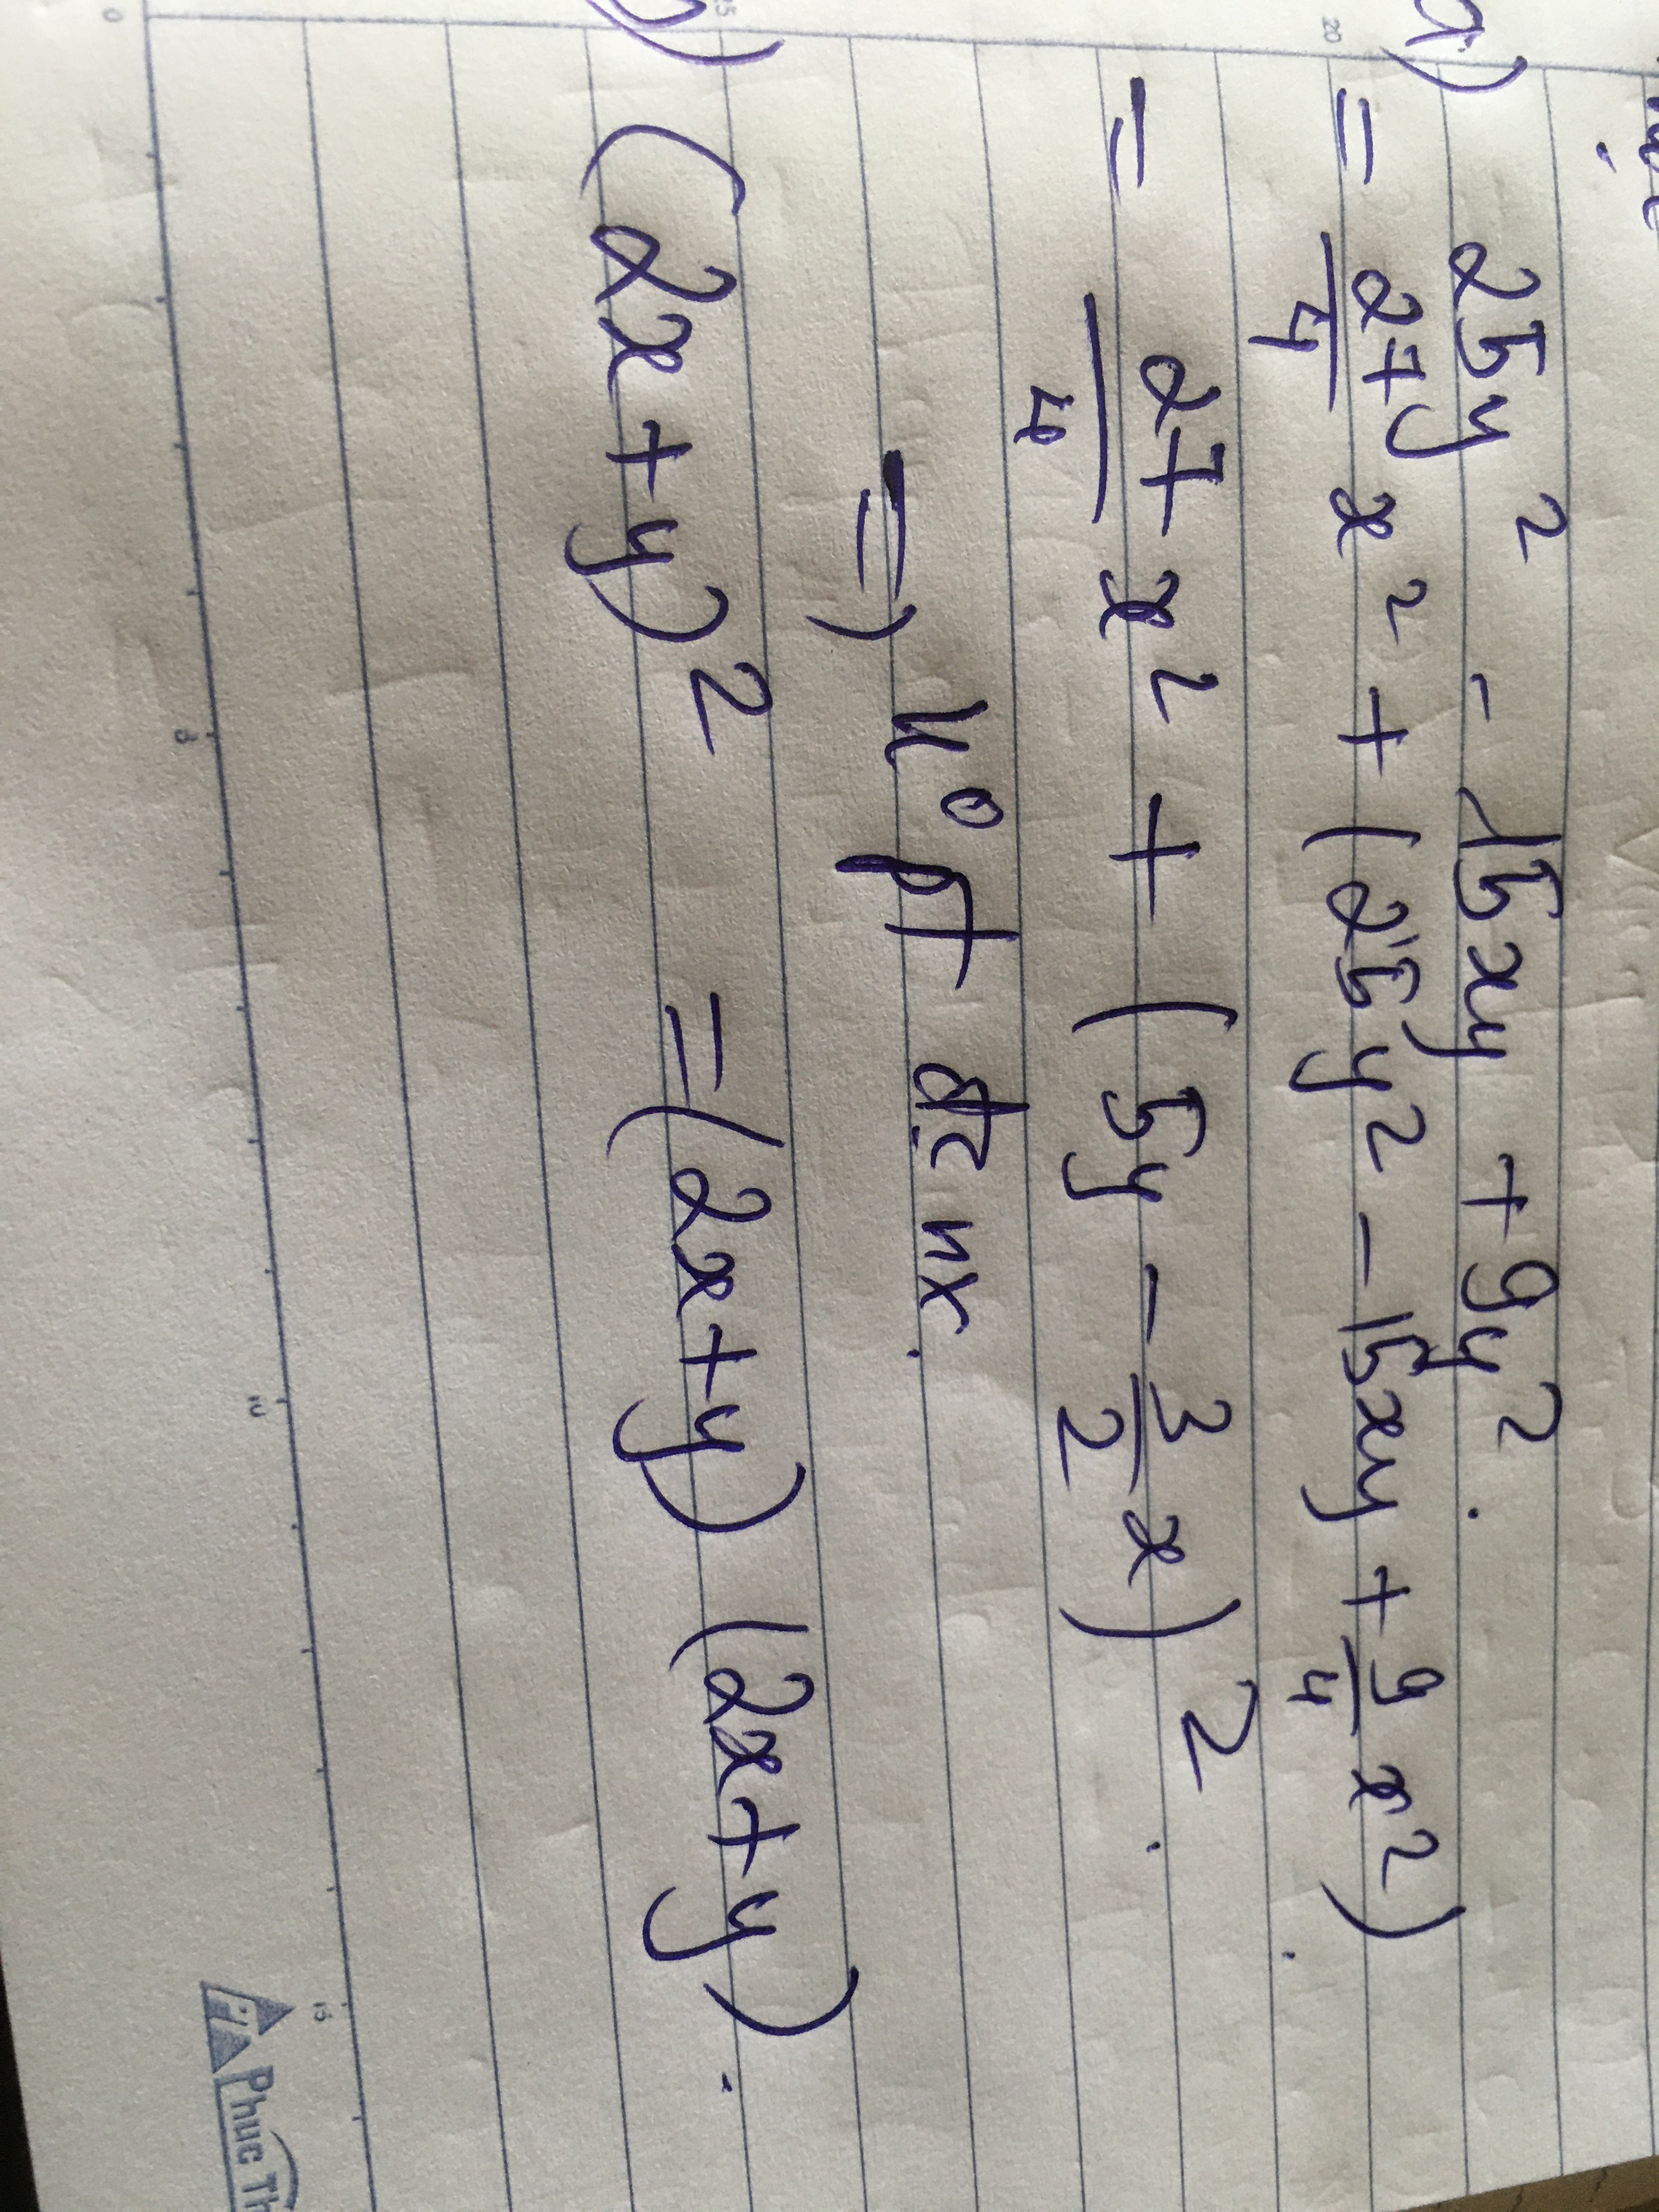 a) 25y² - 15xy + 9y².
= 27/4 x² + (25y² - 15xy + 9/4 x²).
= 27/4 x² + (5y - 3/2 x)².
=) k° pt đc nx.
(2x+y)² = (2x+y) (2x+y).
0 5 10 15
20
25